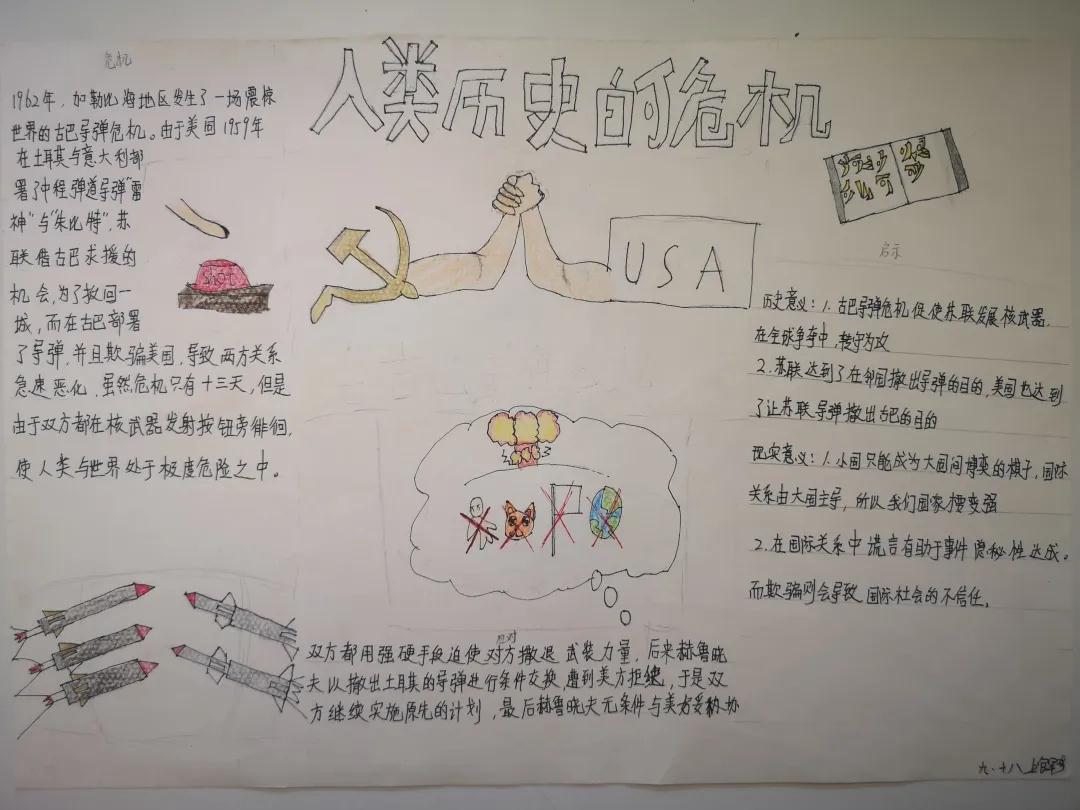 人类历史的危机
危机
1962年，加勒比海地区发生了一场震惊
世界的古巴导弹危机。由于美国1959年
在土耳其与意大利部
署了中程弹道导弹"雷
神"与"朱比特"，苏
联借古巴求援的
机会，为了扳回一
城，而在古巴部署
了导弹，并且欺骗美国，导致两方关系
急速恶化，虽然危机只有十三天，但是
由于双方都在核武器发射按钮旁徘徊，
使人类与世界处于极度危险之中。
USA
应对
双方都用强硬手段迫使对方撤退武装力量，后来赫鲁晓
夫以撤出土耳其的导弹进行条件交换，遭到美方拒绝，于是双
方继续实施原先的计划，最后赫鲁晓夫无条件与美方妥协
启示
历史意义：1.古巴导弹危机促使苏联发展核武器，
在全球争夺中，转守为攻
2.苏联达到了在邻国撤出导弹的目的，美国也达到
了让苏联导弹撤出古巴的目的
现实意义：1.小国只能成为大国间博弈的棋子，国际
关系由大国主导，所以我们国家要变强
2.在国际关系中谎言有助于事件隐秘性达成。
而欺骗则会导致国际社会的不信任。
九·十八